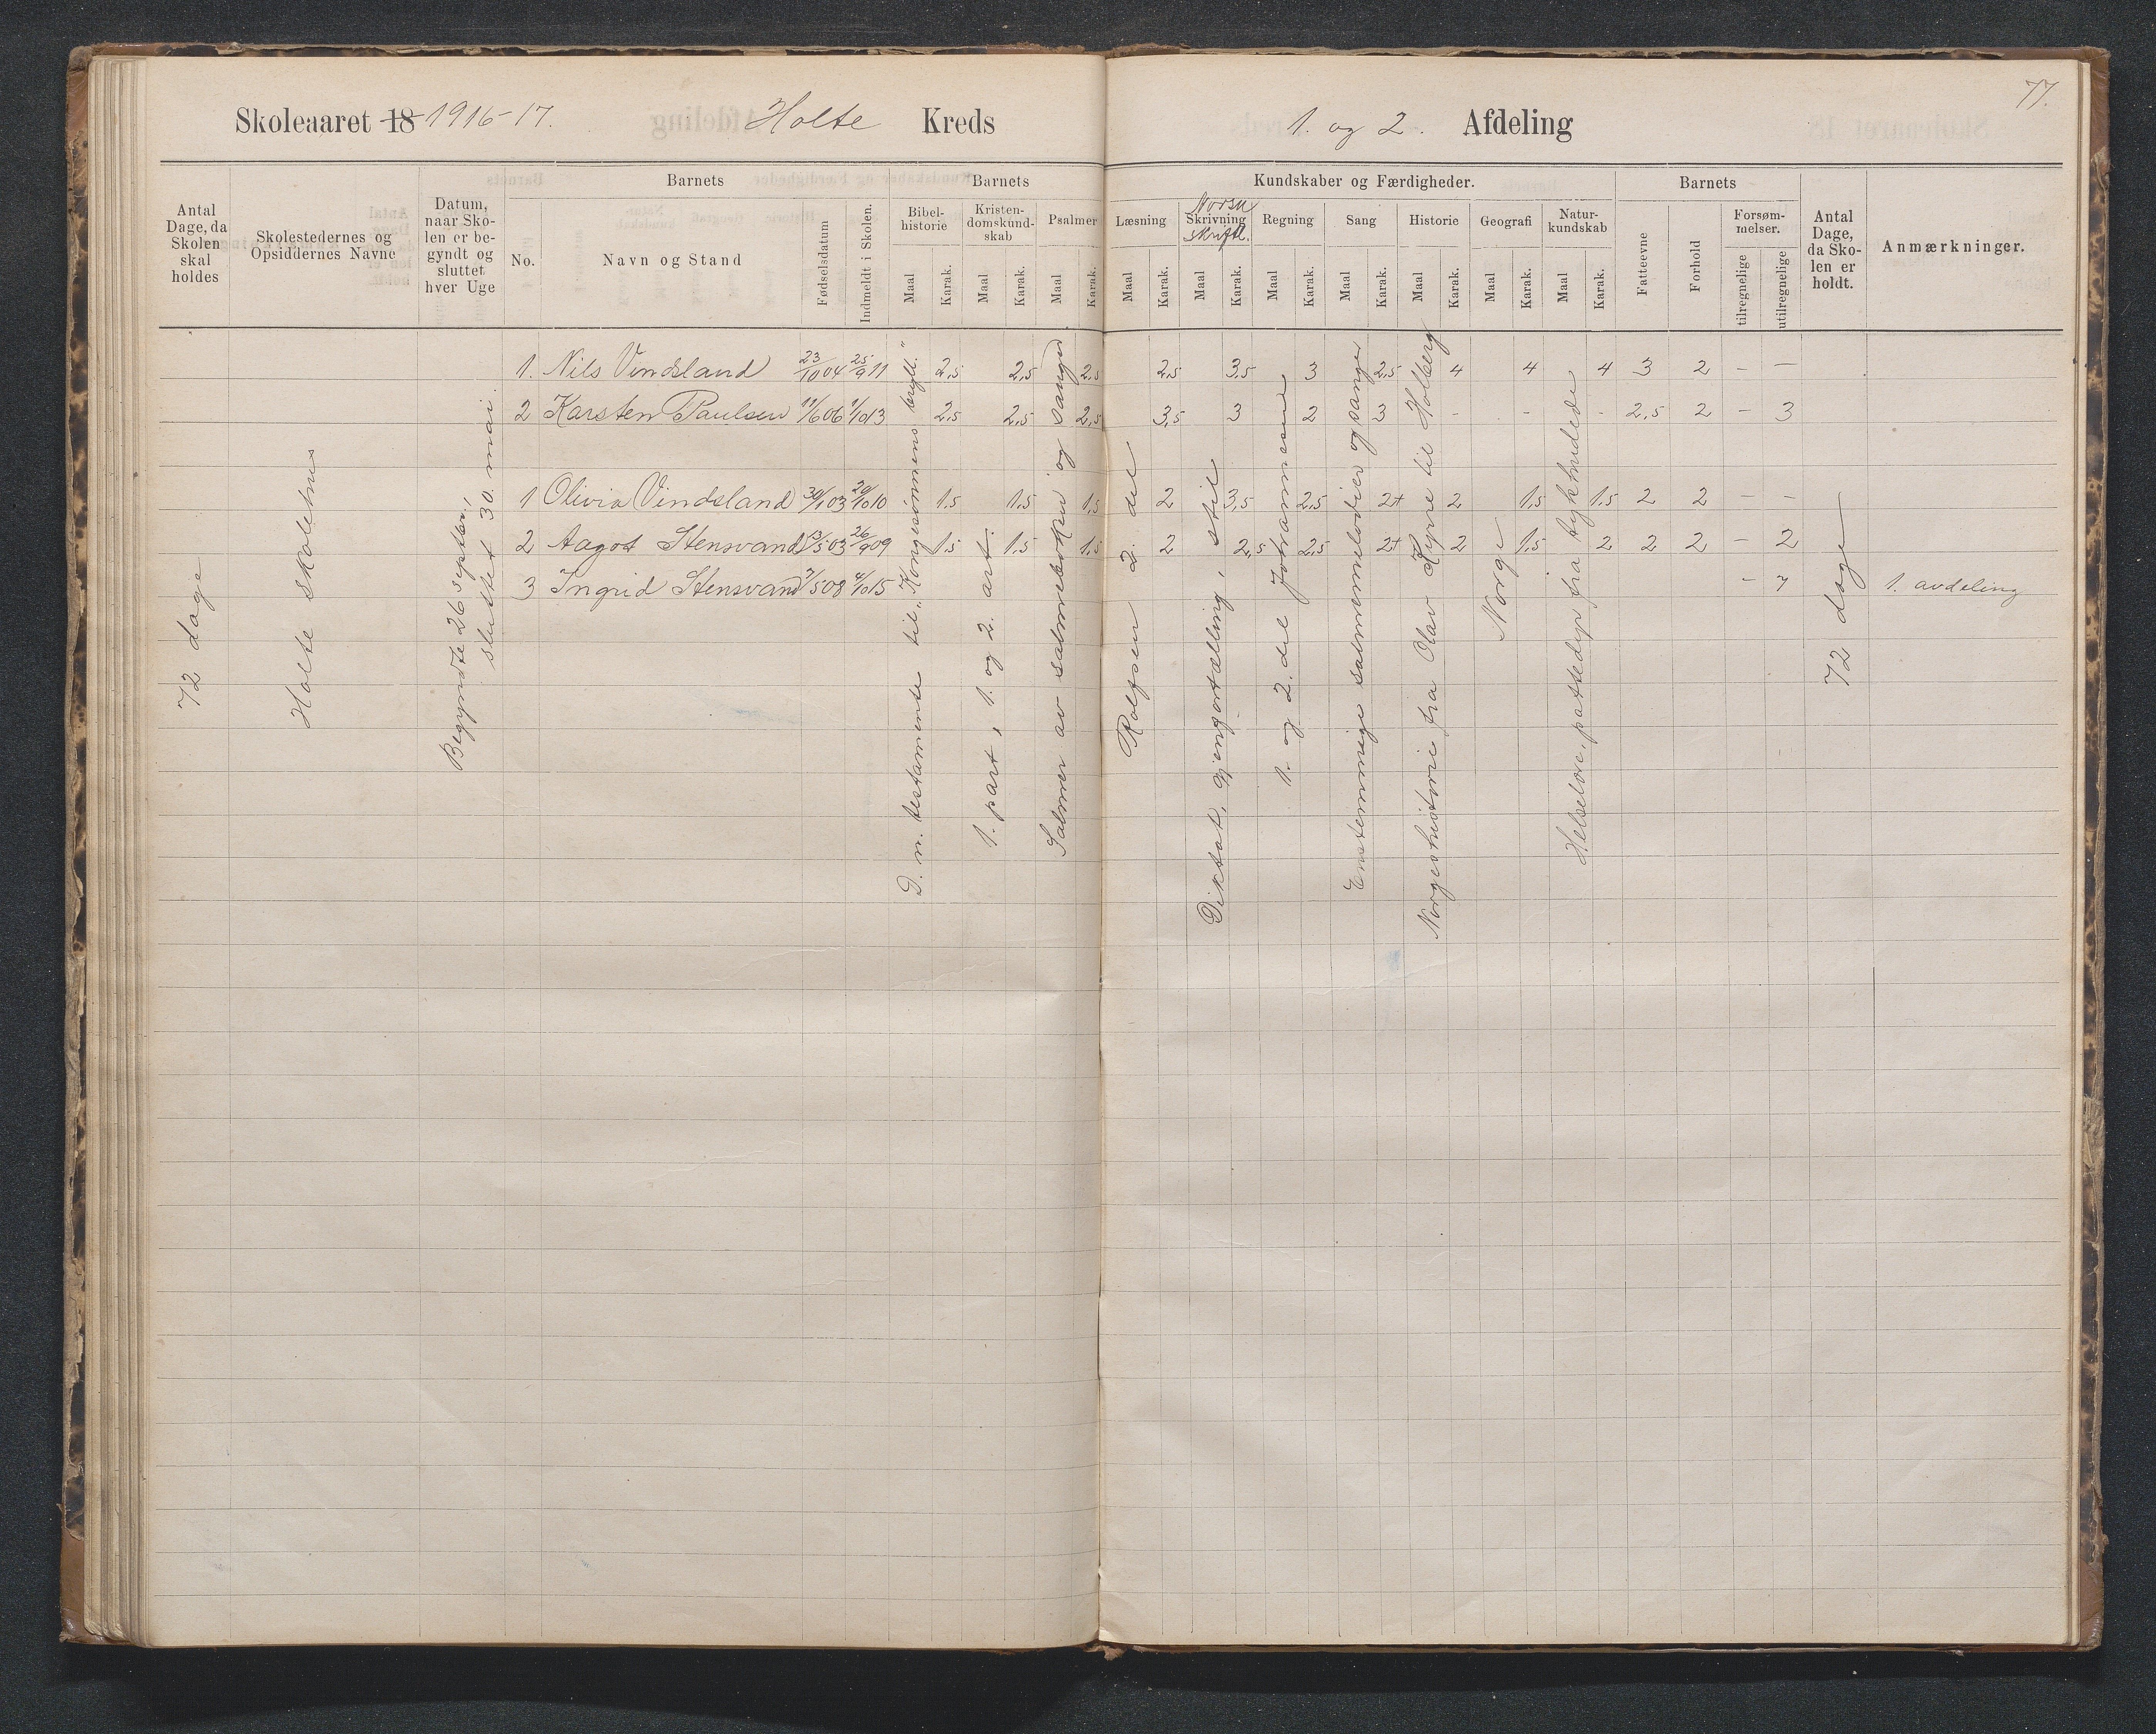 77.
Skoleaaret 18 1916-17. Holte Kreds 1. og 2. Afdeling
Antal Dage, da Skolen skal holdes
Skolestedernes og Opsiddernes Navne
Datum, naar Skolen er begyndt og sluttet hver Uge
Barnets
No.
Navn og Stand
Fødselsdatum
Indmeldt i Skolen.
Barnets
Bibelhistorie
Kristendomskundskab
Psalmer
Maal Karak. Maal Karak. Maal Karak.
Kundskaber og Færdigheder.
Læsning
Norsk
Skrivning
skriftl.
Regning
Sang
Historie
Geografi
Naturkundskab
Maal Karak. Maal Karak. Maal Karak. Maal Karak. Maal Karak. Maal Karak. Maal Karak.
Barnets
Fatteevne
Forhold
Forsømmelser.
tilregnelige
utilregnelige
Antal Dage, da Skolen er holdt.
Anmærkninger.
1. Nils Vindsland 23/10 04 25/9 11 2,5 2,5 2,5 2,5 3,5 3 2,5 4 4 4 3 2 - -
2 Karsten Paulsen 11/6 06 1/10 13 2,5 2,5 2,5 3,5 3 2 3 - - - 2,5 2 - 3
1 Olivia Vindsland 30/1 03 20/10 10 1,5 1,5 1,5 2 3,5 2,5 2+ 2 1,5 1,5 2 2 - -
2 Aagot Stensvand 13/5 03 26/9 09 1,5 1,5 1,5 2 2,5 2,5 2+ 2 1,5 2 2 2 - 2
3 Ingrid Stensvand 7/5 08 4/10 15 - 7 1. avdeling
72 dage
Holte skolehus
Begyndte 26 septbr.,
sluttet 30. mai.
D. n. testamente til "Kongesønnens bryll."
1. part, 1. og 2. art.
Salmer av salmeboken og sanger
Rolfsen 2. del
Diktat, gjenfortælling, stil
1. og 2. del Johannesen
Enstemmige salmemelodier og sanger
Norgeshistorie fra Olav Kyrre til Holberg
Norge
Helselære, pattedyr fra tykhudede
72 dage